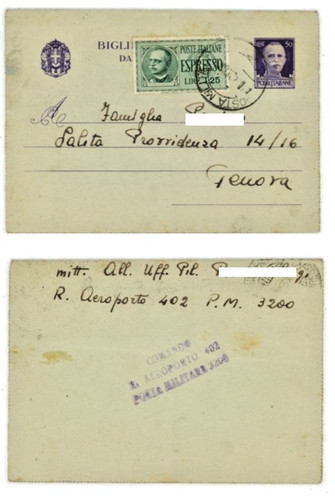 BIGLI
DA
POSTE ITALIANE
ESPRESSO
LIRE 1,25
50
POSTE ITALIANE
POSTA MIL
A Famiglia P
Salita Provvidenza 14/16
Genova
mitt. All. Uff. Pil. P
R. Aeroporto 402 P.M. 3200
COMANDO
R. AEROPORTO 402
POSTA MILITARE 3200